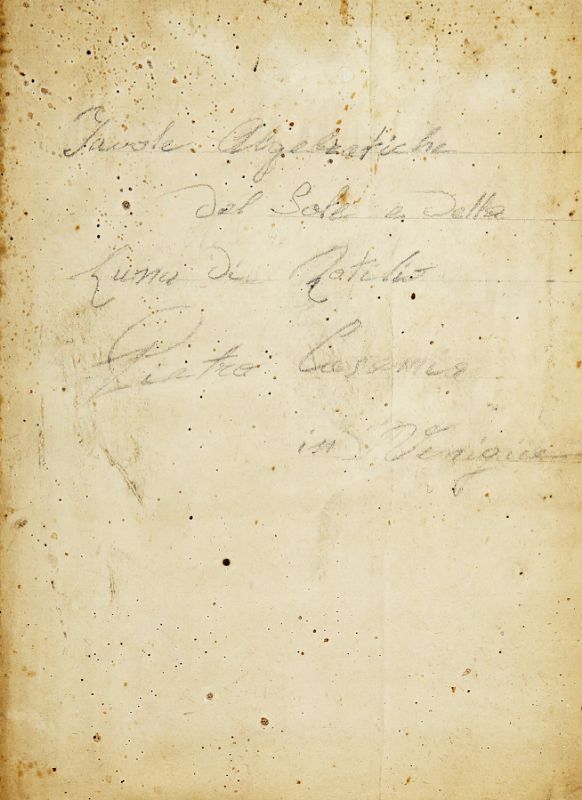 Tavole Algebratiche
del Sole e della
Luna di Rutilio
Pietro Casamia
in Venigia